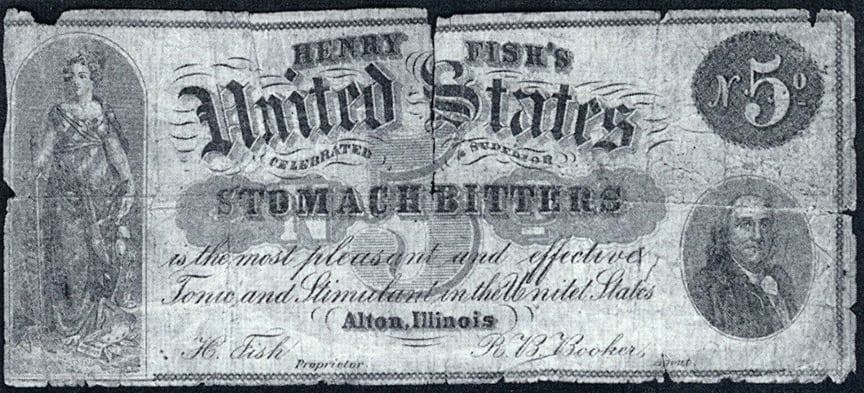 HENRY FISH'S
United States
No 5
CELEBRATED & SUPERIOR
STOMACH BITTERS
5
is the most pleasant and effective
Tonic and Stimulant in the Unitet States
Alton, Illinois
H. Fish R. B. Booker,
Proprietor. Agent